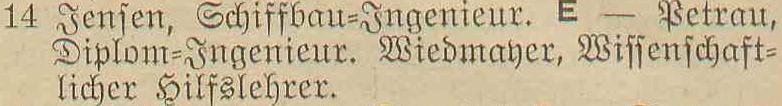 14 Jensen, Schiffbau-Ingenieur. E — Petrau,
Diplom-Ingenieur. Wiedmayer, Wissenschaft-
licher Hilfslehrer.